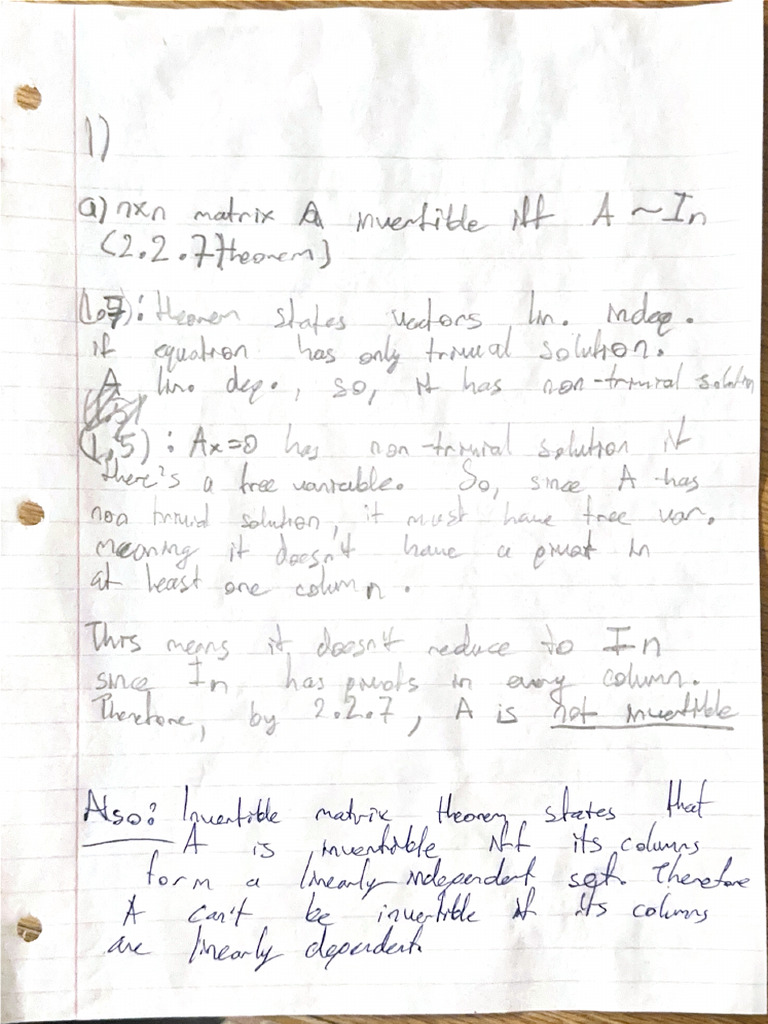 1)
a) nxn matrix A invertible iff A ~ In
(2.2.7 theorem)
(1.7): theorem states vectors lin. indep.
if equation has only trivial solution.
A lin. dep., so, it has non-trivial solution
(1.5): Ax=0 has non-trivial solution if
there's a free variable. So, since A has
non trivial solution, it must have free var.
meaning it doesn't have a pivot in
at least one column.
This means it doesn't reduce to In
since In has pivots in every column.
Therefore, by 2.2.7, A is not invertible
Also: Invertible matrix theorem states that
A is invertible iff its columns
form a linearly independent set. Therefore
A can't be invertible if its columns
are linearly dependent.